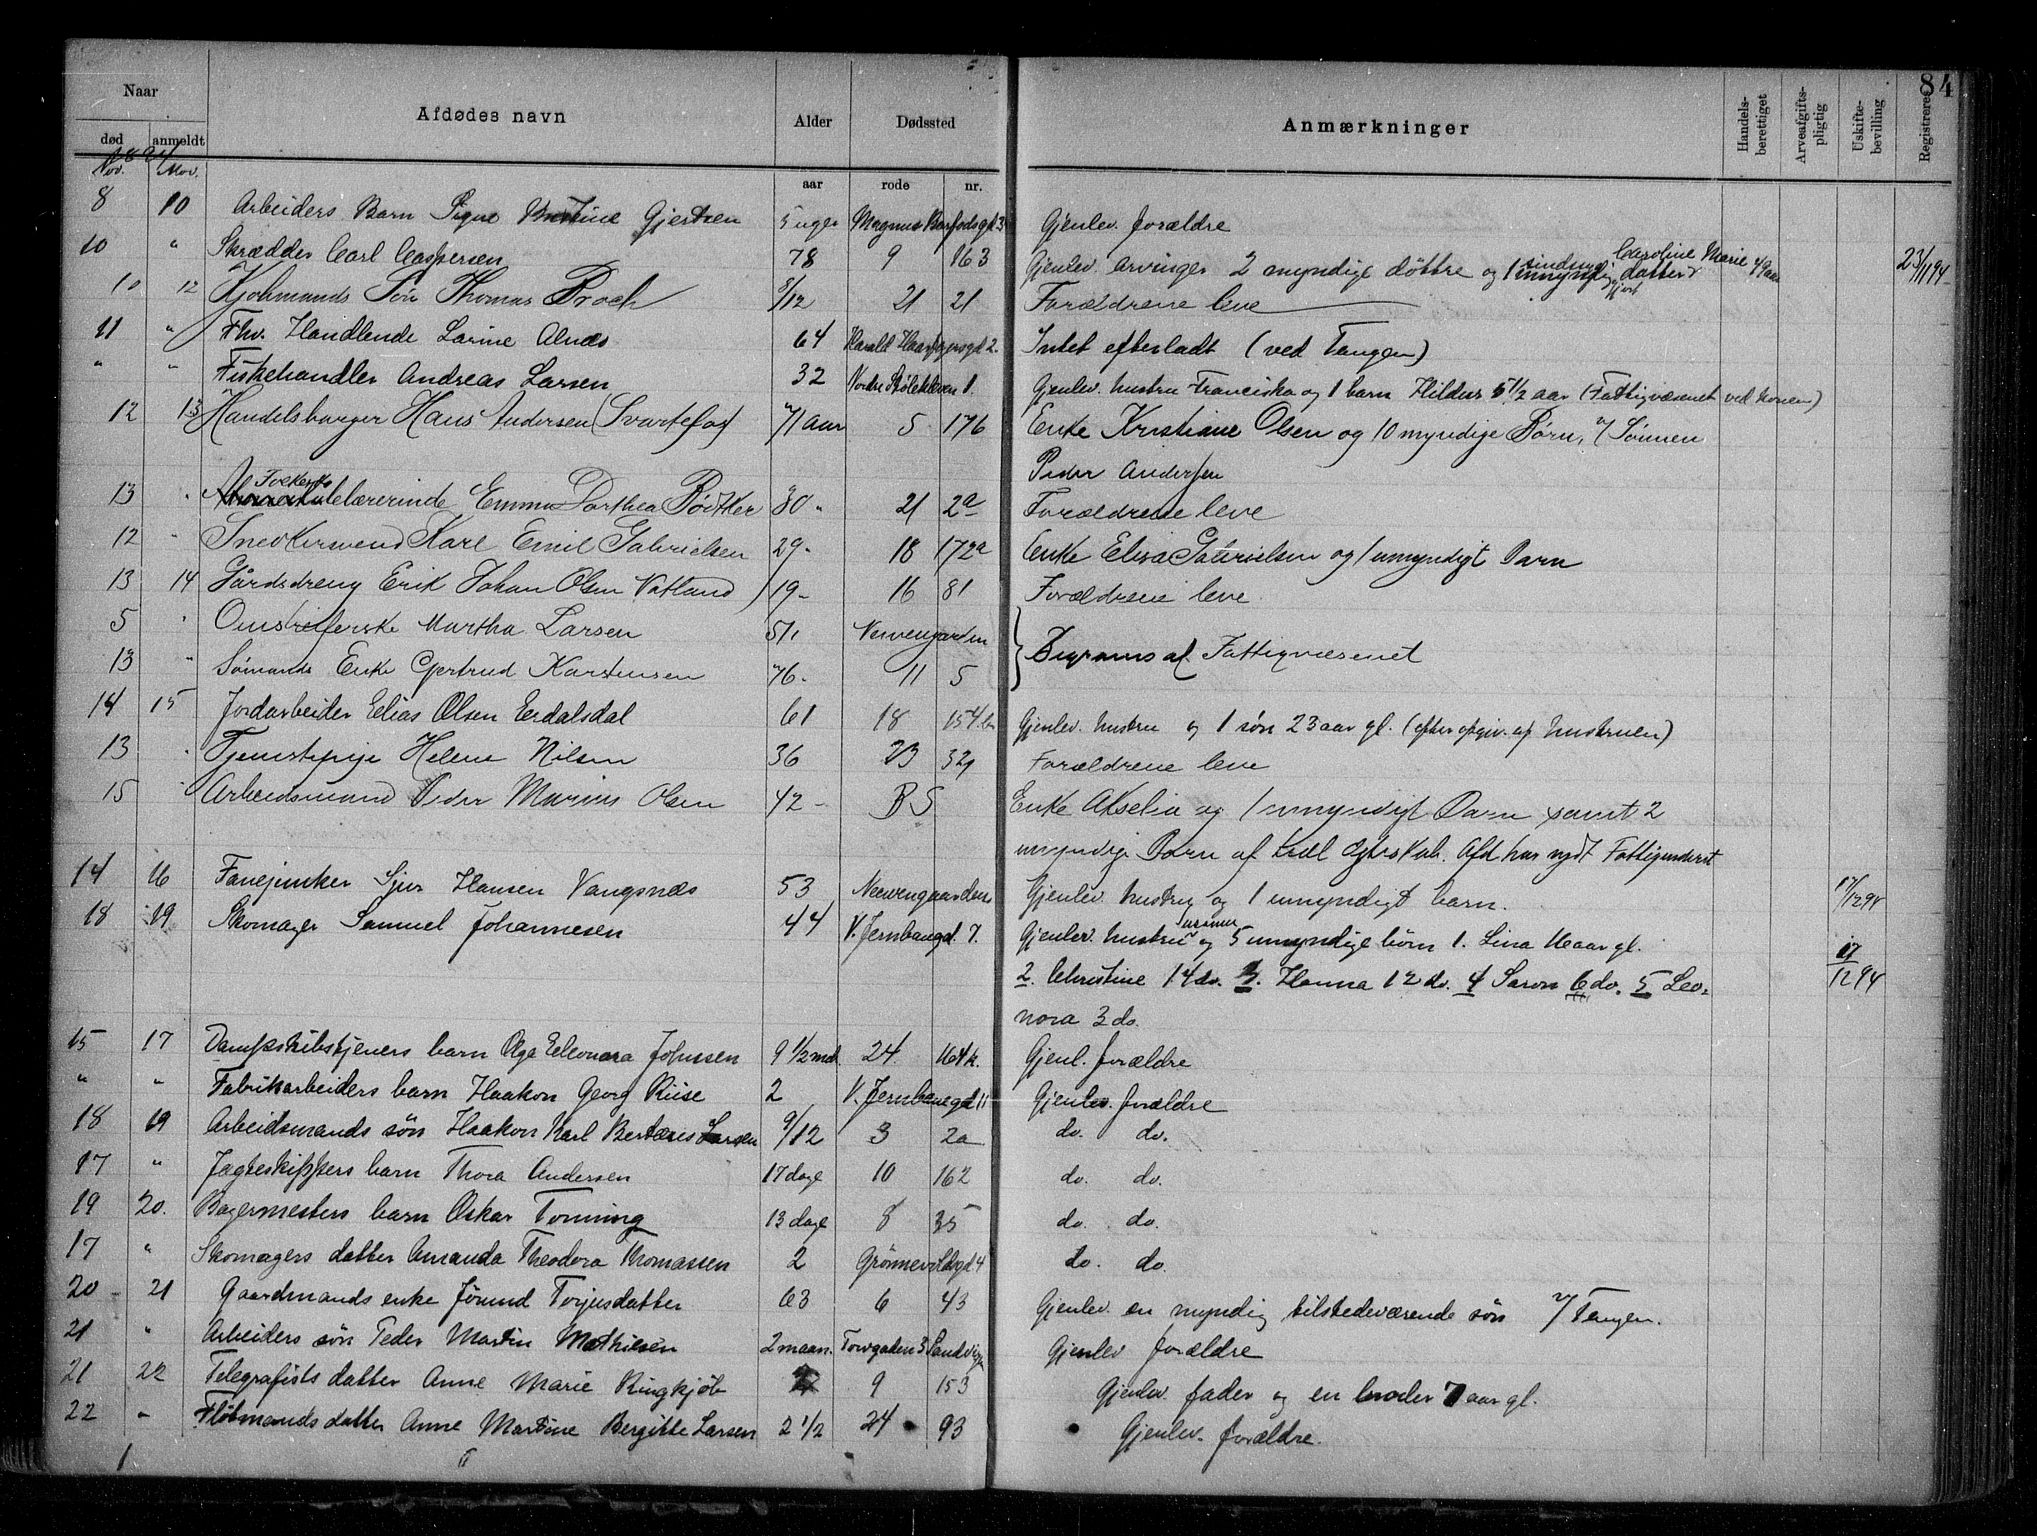 84
Naar
Afdødes navn
Alder
Dødssted
Anmærkninger
Handelsberettiget
Arveafgiftspligtig
Uskiftebevilling
Registreret
død anmeldt
aar rode nr.
1894
Nov. Nov.
8 10 Arbeiders Barn Signe Gjertsen 5 uger Magnus Barfodsgd. 3 Gjenlev. forældre
10 " Skrædder Carl Caspersen 78 9 163 Gjenlev. arvinger 2 myndige døttre og 1 datter Caroline Marie 49 aar 23/11 94
10 12 Kjøbmands Søn Thomas Broch 5/12 21 21 Forældrene leve
11 " Fhv. Handlende Larine Alnæs 64 Harald Haarfagersgd 2. Intet efterladt (ved Tangen)
" " Fiskehandler Andreas Larsen 32 Nordre Skolebakken 1. Gjenlev. hustru Franciska og 1 barn Hildur 6 1/2 aar (Fattigvæsenet ved konen)
12 13 Handelsborger Hans Andersen (Svartefos) 71 aar 5 176 Enke Kristiane Olsen og 10 myndige Børn, v/ Sønnen
Peder Andersen
13 " Folkeskolelærerinde Emma Dorthea Bødtker 30 " 21 2a Forældrene leve
12 " Snedkersvend Karl Emil Gabrielsen 29 - 18 172a Enke Elisa Gabrielsen og 1 umyndigt Barn
13 14 Gårdsdreng Erik Johan Olsen Vatland 19 - 16 81 Forældrene leve.
5 " Martha Larsen 51, Nervengaarden
13 " Sømands Enke Gjertrud Karstensen 76 - 11 5 Begraves af Fattigvæsenet
14 15 Jordarbeider Elias Olsen Erdalsdal 61 18 154 Gjenlev. hustru og 1 søn 23 aar gl. (efter opgiv. af hustruen)
13 " Tjenestepige Helene Nilsen 36 23 329 Forældrene leve
15 " Arbeidsmand Peder Marius Olsen 42 - BS Enke Akselia og 1 umyndigt Barn samt 2
umyndige Barn af Egteskab. Afd har nydt Fattigunderst
14 16 Fanejunker Sjur Hansen Vangsnæs 53 Nervengaarden Gjenlev. hustru og 1 umyndigt barn. 17/12 94
18 19 Skomager Samuel Johannesen 44 V. Jernbanegd. 7. Gjenlev. hustru og 5 umyndige børn 1. Lina 16 aar gl. 17/12 94
2. Christine 14 do. 3. Hanna 12 do. 4 Saron 6 do. 5 Leo-
nora 3 do.
15 17 Dampskibstjeners barn Olga Eleonora Johnssen 9 1/2 md. 24 164k. Gjenl. forældre
" " Fabrikarbeiders barn Haakon Georg Riise 2 V. Jernbanegd 11 Gjenlev. forældre
18 19 Arbeidsmands søn Haakon Karl Larsen 9/12 3 2a do. do.
17 " Jagteskippers barn Thora Andersen 17 dage 10 162 do. do.
19 20. Bagermesters barn Oskar Tonning 13 dage 8 35 do. do.
17 " Skomagers datter Amanda Theodora Thomassen 2 Grønnevoldsgd 4 do. do.
20 21 Gaardmands enke Jørund Torjusdatter 63 6 43 Gjenlev. en myndig tilstedeværende søn v/ Tangen.
21 " Arbeiders søn Peder Martin Mathiesen 2 maan. Torvgaden 3 Sandvigen Gjenlev forældre
21 22 Telegrafists datter Anne Marie Ringkjøb 9 153 Gjenlev. fader og en broder 7 aar gl.
22 " Fløtmands datter Anne Martine Bergitte Larsen 2 1/2 24 93 Gjenlev. forældre.